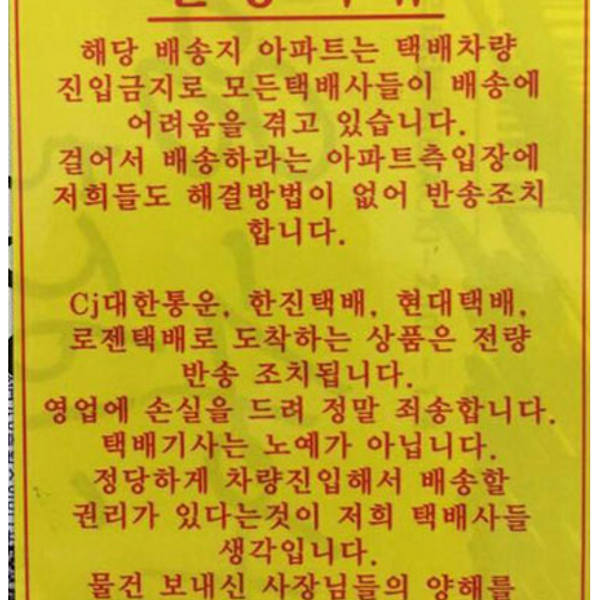 해당 배송지 아파트는 택배차량
진입금지로 모든택배사들이 배송에
어려움을 겪고 있습니다.
걸어서 배송하라는 아파트측입장에
저희들도 해결방법이 없어 반송조치
합니다.
Cj대한통운, 한진택배, 현대택배,
로젠택배로 도착하는 상품은 전량
반송 조치됩니다.
영업에 손실을 드려 정말 죄송합니다.
택배기사는 노예가 아닙니다.
정당하게 차량진입해서 배송할
권리가 있다는것이 저희 택배사들
생각입니다.
물건 보내신 사장님들의 양해를